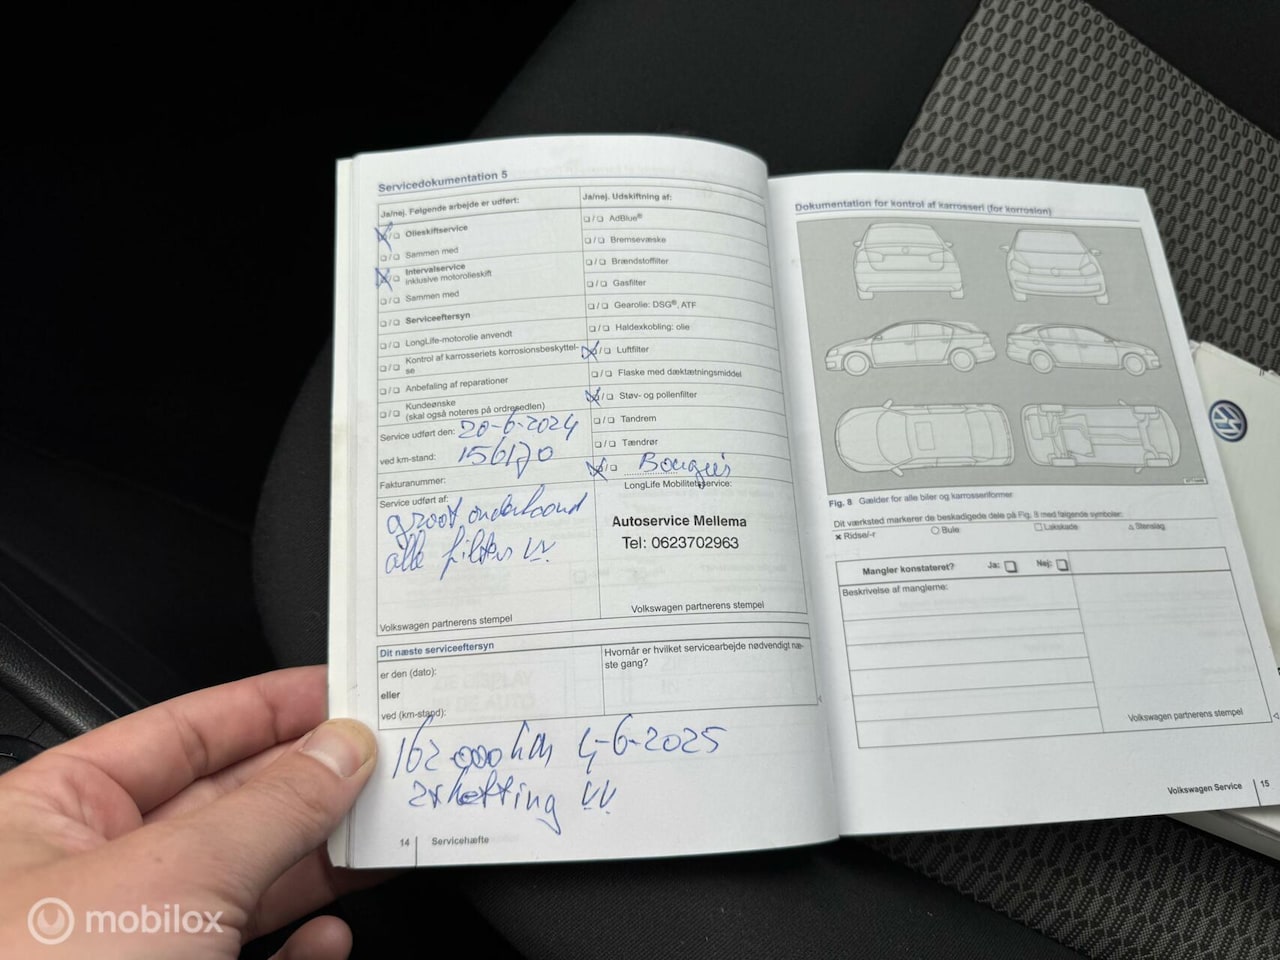 Servicedokumentation 5
Ja/nej. Følgende arbejde er udført:
Olieskiftservice
Sammen med
Intervalservice
inklusive motorolieskift
Sammen med
Serviceeftersyn
LongLife-motorolie anvendt
Kontrol af karrosseriets korrosionsbeskyttel-
se
Anbefaling af reparationer
Kundeønske
(skal også noteres på ordresedlen)
Service udført den: 20-6-2024
ved km-stand: 156170
Fakturanummer:
Service udført af:
groot onderhoud
alle filters VV
Volkswagen partnerens stempel
Ja/nej. Udskiftning af:
AdBlue®
Bremsevæske
Brændstoffilter
Gasfilter
Gearolie: DSG®, ATF
Haldexkobling: olie
Luftfilter
Flaske med dæktætningsmiddel
Støv- og pollenfilter
Tandrem
Tændrør
Bougies
LongLife Mobilitetsservice:
Autoservice Mellema
Tel: 0623702963
Volkswagen partnerens stempel
Dit næste serviceeftersyn
er den (dato):
eller
ved (km-stand):
Hvornår er hvilket servicearbejde nødvendigt næ-
ste gang?
162 000 km 4-6-2025
ketting VV
14 Servicehæfte
Dokumentation for kontrol af karrosseri (for korrosion)
Fig. 8 Gælder for alle biler og karrosseriformer
Dit værksted markerer de beskadigede dele på Fig. 8 med følgende symboler:
× Ridse/-r ○ Bule □ Lakskade △ Stenslag
Mangler konstateret? Ja: Nej:
Beskrivelse af manglerne:
Volkswagen partnerens stempel
Volkswagen Service 15
mobilox